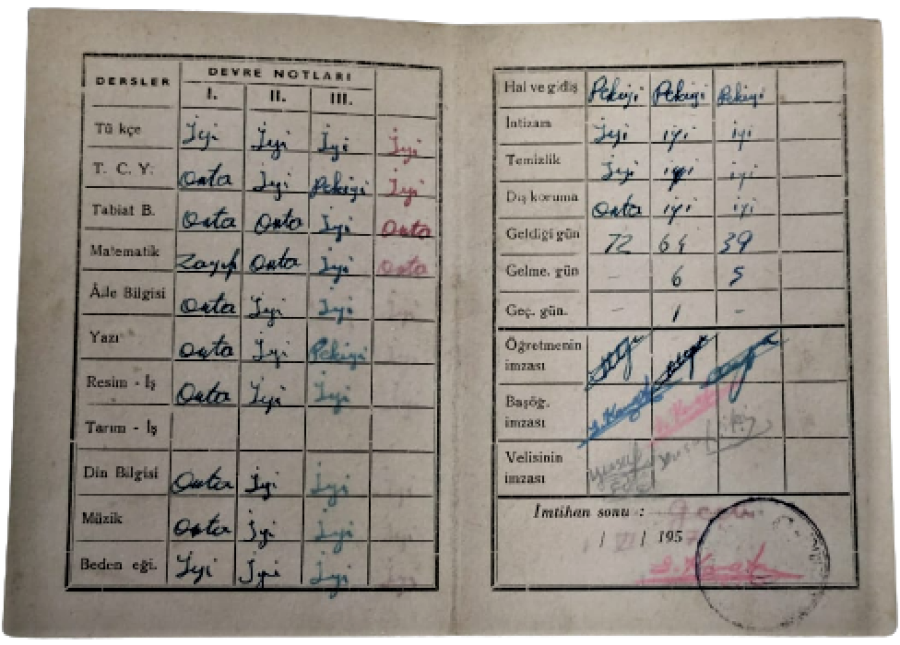 DERSLER DEVRE NOTLARI
I. II. III.
Tü kçe İyi İyi İyi İyi
T. C. Y. Orta İyi Pekiyi İyi
Tabiat B. Orta Orta İyi Orta
Matematik Zayıf Orta İyi Orta
Âile Bilgisi Orta İyi İyi İyi
Yazı Orta İyi Pekiyi
Resim - İş Orta İyi İyi
Tarım - İş
Din Bilgisi Orta İyi İyi
Müzik Orta İyi İyi
Beden eği. İyi İyi İyi İyi
Hal ve gidiş Pekiyi Pekiyi Pekiyi
İntizam İyi iyi iyi
Temizlik İyi iyi iyi
Dış koruma Orta iyi iyi
Geldiği gün 72 64 39
Gelme. gün - 6 5
Geç. gün. - 1 -
Öğretmenin
imzası
Başöğ.
imzası
Velisinin
imzası Yusuf
İmtihan sonu :
/ VI / 195